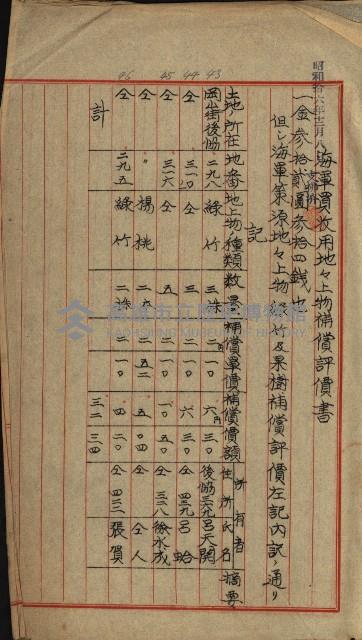 昭和拾六年十二月八日
海軍買收用地々上物補償評價書
一金參拾貳圓參拾四錢也
但シ海軍第源地々上物綠竹及果樹補償評價左記內訳ノ通リ
記
土地ノ所在 地番 地上物種類 數量 補償單價 補償價額 所有者 住所 氏名 摘要
43 岡山街後協 二九八 綠竹 三株 二一〇 六三〇 後協三九 呂天闊
44 仝 三一〇 仝 三 二一〇 六三〇 仝 四三九 呂蛤
45 仝 三一六 仝 五 二一〇 一〇五〇 仝 三三八 徐水成
仝 〃 楊桃 二 二五二 五〇四 仝人
46 仝 二九五 綠竹 二株 二一〇 四二〇 仝 四三三 張賀
計 三二三四
高雄市立歷史博物館
KAOHSIUNG MUSEUM OF HISTORY